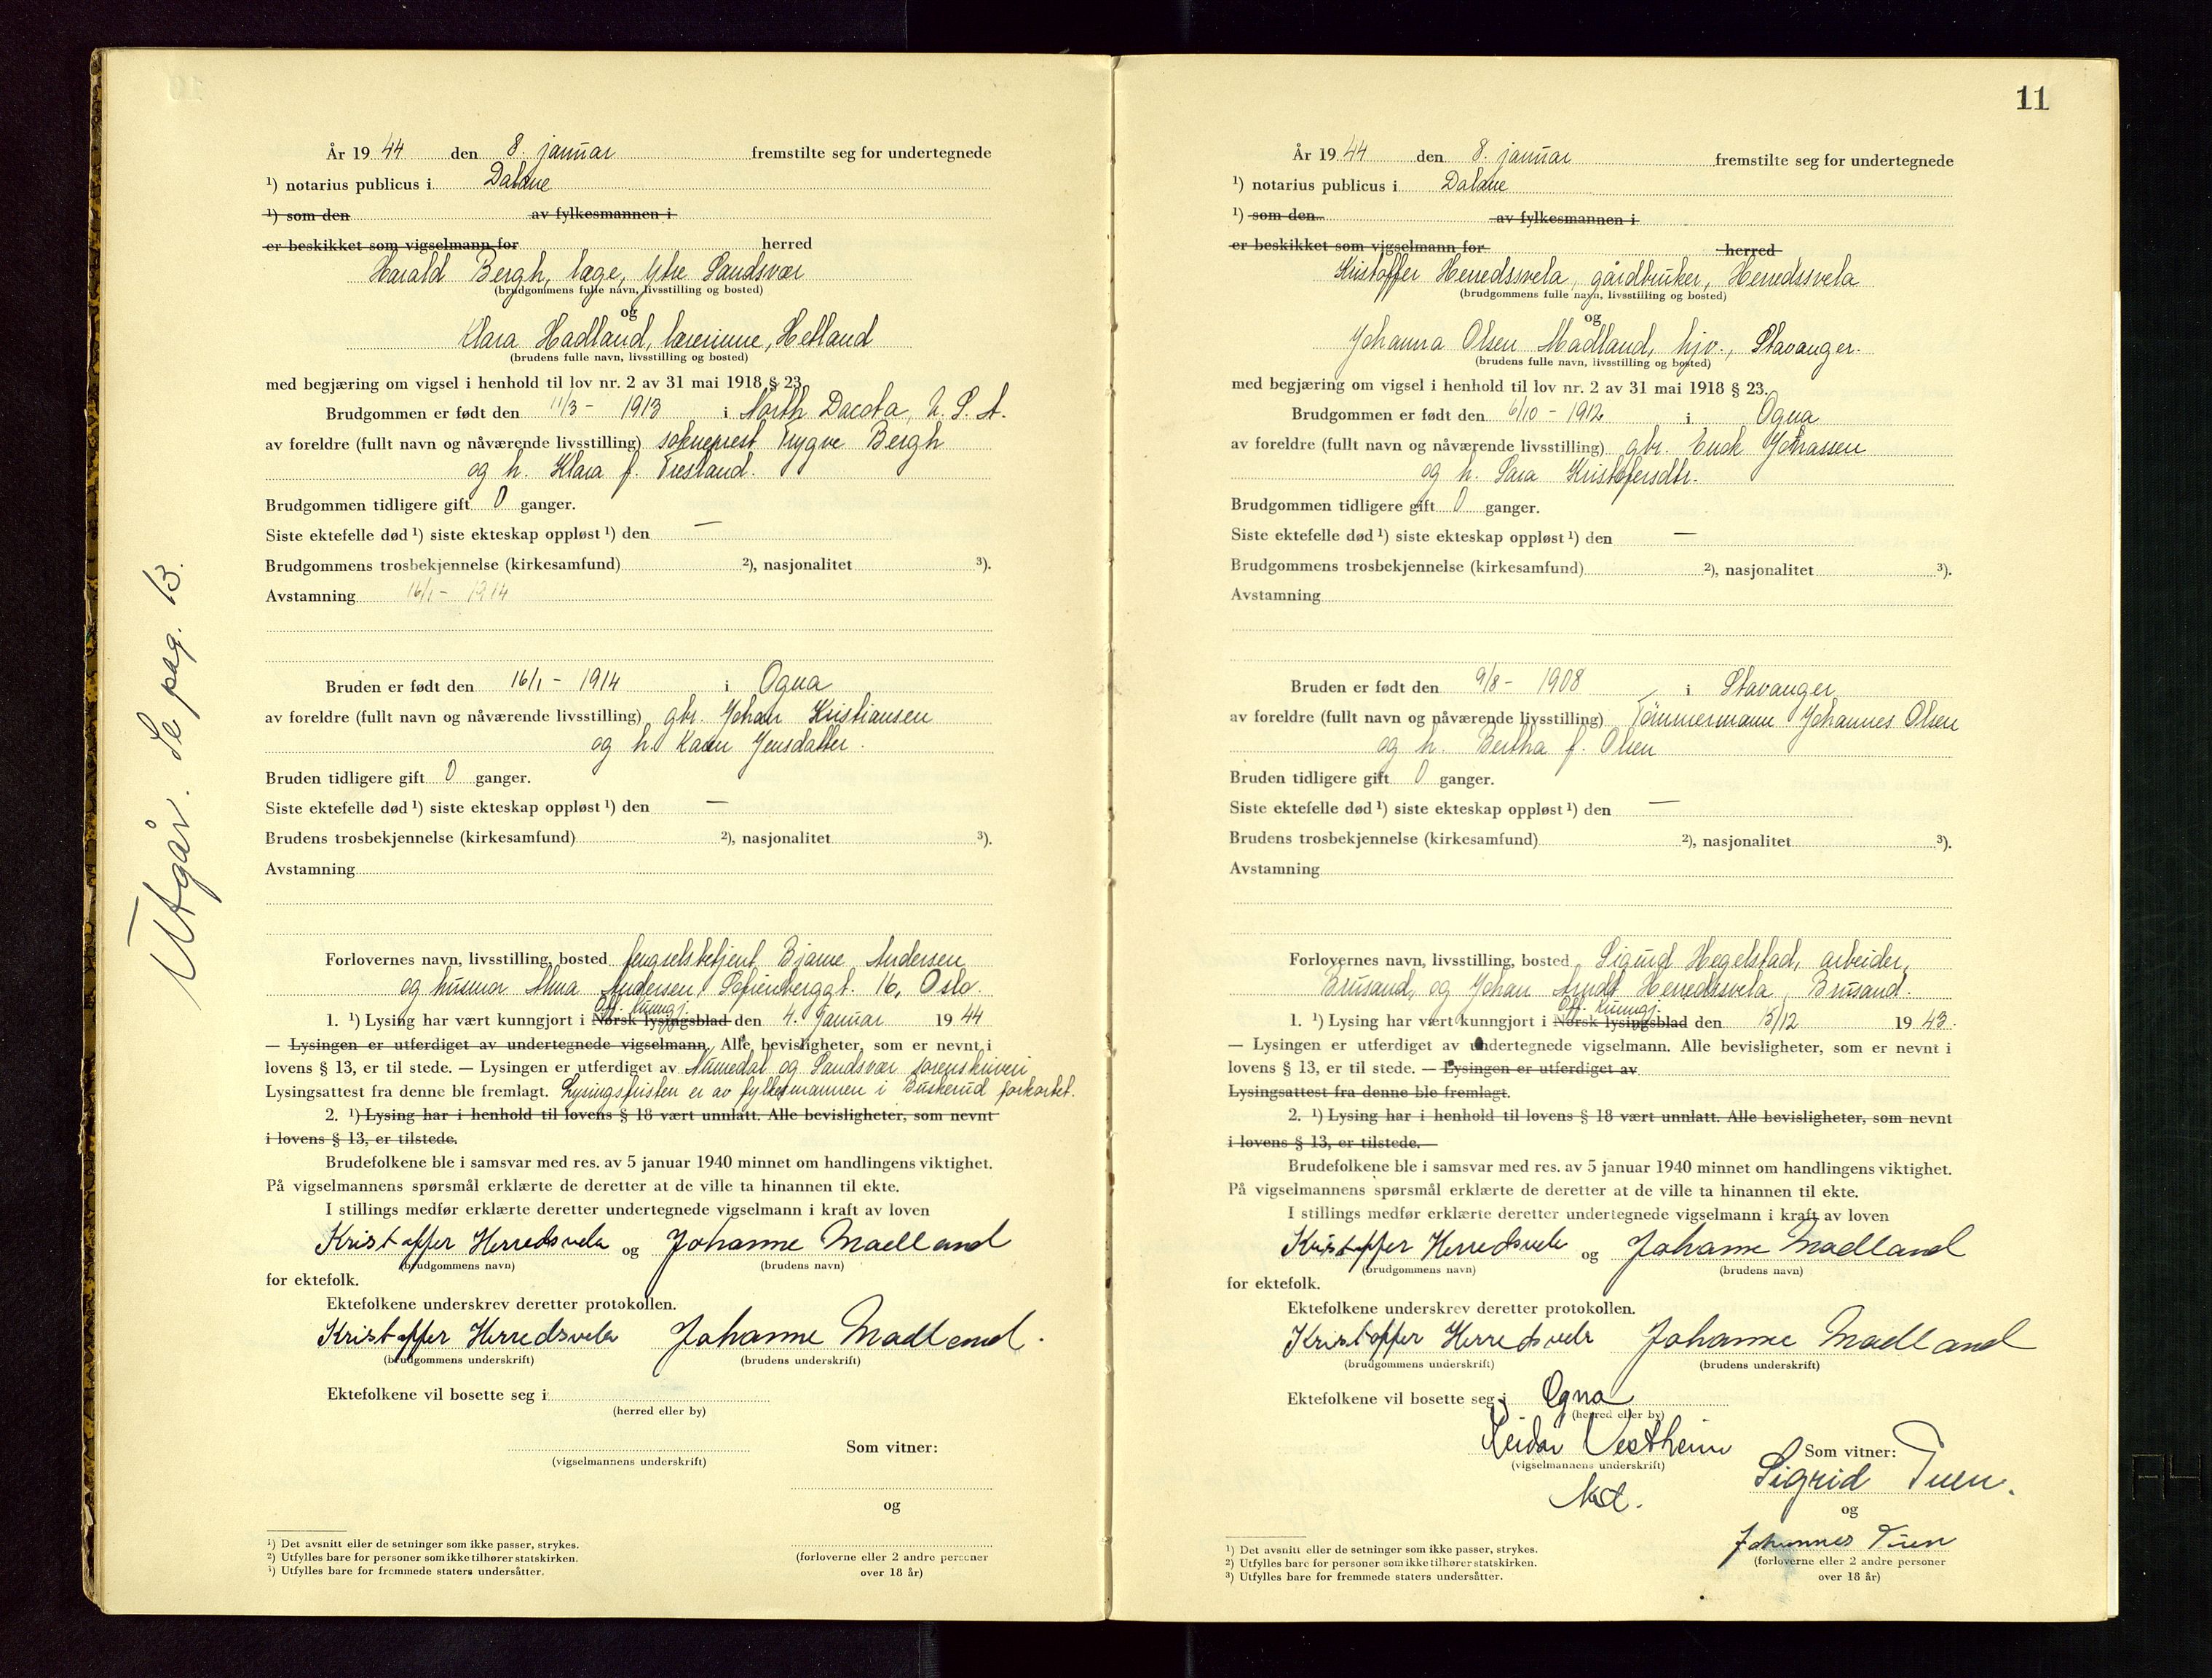 Utgår. Se pag. 13.
År 19 44 den 8. januar fremstilte seg for undertegnede
¹) notarius publicus i Dalane
¹) som den av fylkesmannen i
er beskikket som vigselmann for herred
Harald Bergh, læge, Ytre Sandsvær
(brudgommens fulle navn, livsstilling og bosted)
og
Klara Hadland, lærerinne, Hetland
(brudens fulle navn, livsstilling og bosted)
med begjæring om vigsel i henhold til lov nr. 2 av 31 mai 1918 § 23.
Brudgommen er født den 11/3 - 1913 i North Dacota, U. S. A.
av foreldre (fullt navn og nåværende livsstilling) sokneprest Trygve Bergh
og h. Klara f.
Brudgommen tidligere gift 0 ganger.
Siste ektefelle død ¹) siste ekteskap oppløst ¹) den —
Brudgommens trosbekjennelse (kirkesamfund) ²), nasjonalitet ³).
Avstamning 16/1 - 1914
Bruden er født den 16/1 - 1914 i Ogna
av foreldre (fullt navn og nåværende livsstilling) gbr. Johan Kristiansen
og h. Karen Jensdatter.
Bruden tidligere gift 0 ganger.
Siste ektefelle død ¹) siste ekteskap oppløst ¹) den —
Brudens trosbekjennelse (kirkesamfund) ²), nasjonalitet ³).
Avstamning
Forlovernes navn, livsstilling, bosted fengselsbetjent Bjarne Andersen
og husmor Alma Andersen, Sofienberggt. 16, Oslo.
Off. kunngj.
1. ¹) Lysing har vært kunngjort i Norsk lysingsblad den 4. januar 19 44
— Lysingen er utferdiget av undertegnede vigselmann. Alle bevisligheter, som er nevnt i
lovens § 13, er til stede. — Lysingen er utferdiget av Numedal og Sandsvær sorenskriveri
Lysingsattest fra denne ble fremlagt. Lysingsfristen er av fylkesmannen i Buskerud forkortet.
2. ¹) Lysing har i henhold til lovens § 18 vært unnlatt. Alle bevisligheter, som nevnt
i lovens § 13, er tilstede.
Brudefolkene ble i samsvar med res. av 5 januar 1940 minnet om handlingens viktighet.
På vigselmannens spørsmål erklærte de deretter at de ville ta hinannen til ekte.
I stillings medfør erklærte deretter undertegnede vigselmann i kraft av loven
Kristoffer Herredsvela og Johanne Madland
(brudgommens navn) (brudens navn)
for ektefolk.
Ektefolkene underskrev deretter protokollen.
Kristoffer Herredsvela Johanne Madland.
(brudgommens underskrift) (brudens underskrift)
Ektefolkene vil bosette seg i
(herred eller by)
Som vitner:
(vigselmannens underskrift)
og
¹) Det avsnitt eller de setninger som ikke passer, strykes.
²) Utfylles bare for personer som ikke tilhører statskirken.
³) Utfylles bare for fremmede staters undersåtter.
(forloverne eller 2 andre personer
over 18 år)
11
År 19 44 den 8. januar fremstilte seg for undertegnede
¹) notarius publicus i Dalane
¹) som den av fylkesmannen i
er beskikket som vigselmann for herred
Kristoffer Herredssvela, gårdbruker, Herredssvela
(brudgommens fulle navn, livsstilling og bosted)
og
Johanna Olsen Madland, hjv., Stavanger.
(brudens fulle navn, livsstilling og bosted)
med begjæring om vigsel i henhold til lov nr. 2 av 31 mai 1918 § 23.
Brudgommen er født den 6/10 - 1912 i Ogna
av foreldre (fullt navn og nåværende livsstilling) gbr. Enok Johnassen
og h. Sara Kristofersdtr.
Brudgommen tidligere gift 0 ganger.
Siste ektefelle død ¹) siste ekteskap oppløst ¹) den —
Brudgommens trosbekjennelse (kirkesamfund) ²), nasjonalitet ³).
Avstamning
Bruden er født den 9/8 - 1908 i Stavanger
av foreldre (fullt navn og nåværende livsstilling) Tømmermann Johannes Olsen
og h. Bertha f. Olsen
Bruden tidligere gift 0 ganger.
Siste ektefelle død ¹) siste ekteskap oppløst ¹) den —
Brudens trosbekjennelse (kirkesamfund) ²), nasjonalitet ³).
Avstamning
Forlovernes navn, livsstilling, bosted Sigurd Hegelstad, arbeider,
Brusand, og Johan Arndt Herredssvela, Brusand.
Off. kunngj.
1. ¹) Lysing har vært kunngjort i Norsk lysingsblad den 15/12 19 43.
— Lysingen er utferdiget av undertegnede vigselmann. Alle bevisligheter, som er nevnt i
lovens § 13, er til stede. — Lysingen er utferdiget av
Lysingsattest fra denne ble fremlagt.
2. ¹) Lysing har i henhold til lovens § 18 vært unnlatt. Alle bevisligheter, som nevnt
i lovens § 13, er tilstede. —
Brudefolkene ble i samsvar med res. av 5 januar 1940 minnet om handlingens viktighet.
På vigselmannens spørsmål erklærte de deretter at de ville ta hinannen til ekte.
I stillings medfør erklærte deretter undertegnede vigselmann i kraft av loven
Kristoffer Herredsvela og Johanne Madland
(brudgommens navn) (brudens navn)
for ektefolk.
Ektefolkene underskrev deretter protokollen.
Kristoffer Herredsvela Johanne Madland
(brudgommens underskrift) (brudens underskrift)
Ektefolkene vil bosette seg i Ogna
(herred eller by)
Reidar Vestheim Som vitner:
(vigselmannens underskrift) Sigrid Tuen.
og
Johannes Tuen
¹) Det avsnitt eller de setninger som ikke passer, strykes.
²) Utfylles bare for personer som ikke tilhører statskirken.
³) Utfylles bare for fremmede staters undersåtter.
(forloverne eller 2 andre personer
over 18 år)